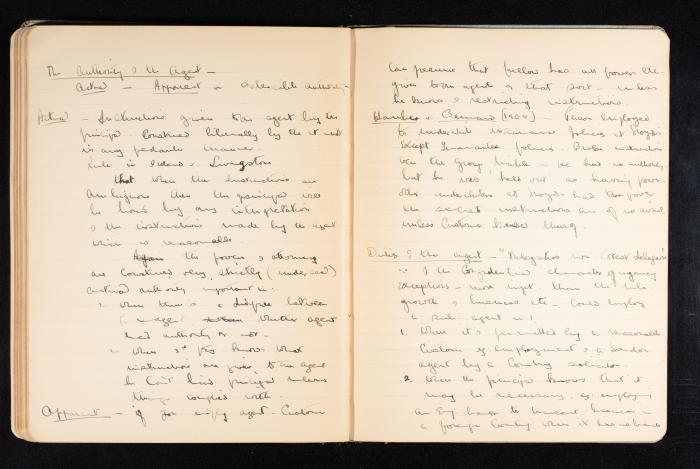 The Authority of the Agent -
Actual - Apparent or ostensible authority -
Actual - Instructions given to an agent by the
principal. Construed liberally by the ct. not
in any pedantic manner.
Rule in Ireland v. Livingston
that when the instructions are
ambiguous then the principal will
be bound by any interpretation
of the instructions made by the agent
which is reasonable.
the powers of attorney
are construed very strictly (under seal)
Actual authority important in:
1. when there is a dispute between
agent whether agent
had authority or not.
2. When 3rd party knows what
instructions are given to an agent
he can't bind principal unless
things complied with.
Apparent - if you employ agent. Custom
Can presume that fellow has all powers etc.
given to an agent of that sort - unless
he knows of restricting instructions.
v. (1900) - Person employed
to underwrite insurance policies at Lloyds
except guarantee policies. instructions
the Group liable - he had no authority
but he was held out as having power
other underwriters at Lloyds had the power
the secret instructions are of no avail
unless Customer knows thereof.
Duties of the agent - "Delegatus non potest delegare"
∵ of the Confidential character of agency
exceptions - more impt. than the rule
growth of business etc - Could employ
a sub-agent in:
1. Where it is permitted by a reasonable
custom eg. employment of a London
agent by a Country solicitor.
2. When the principal knows that it
may be necessary. eg: employing
an Eng. banker to transact business in
a foreign Country when it has no branch